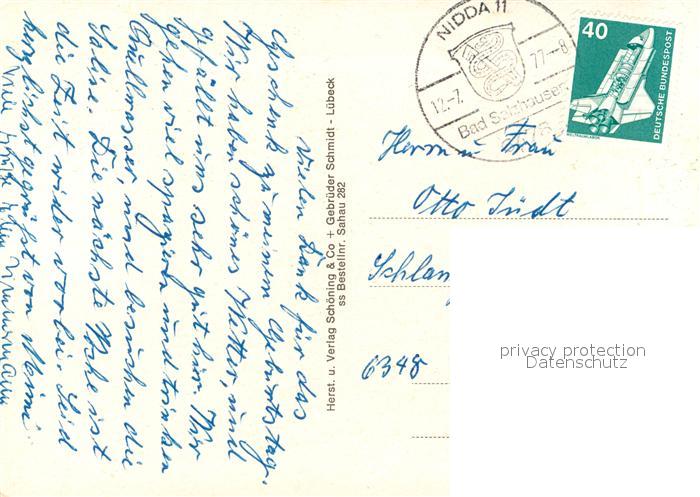 Vielen Dank für das
Geschenk zu meinem Geburtstag.
Wir haben schönes Wetter, und
gefällt uns sehr gut hier. Wir
gehen viel spazieren und trinken
Quellwasser, und besuchen die
Saline. Die nächste Woche ist
die Zeit wider vorbei. Seid
herzlichst gegrüßt von Meimi
Viele Grüße
Herst. u. Verlag Schöning & Co + Gebrüder Schmidt - Lübeck
ss Bestellnr. Sahau 282
NIDDA 11
12.-7. 77-8
Bad Salzhausen
40
DEUTSCHE BUNDESPOST
WELTRAUMLABOR
Herrn u Frau
Otto Jüdt
Schlan
6348
privacy protection
Datenschutz